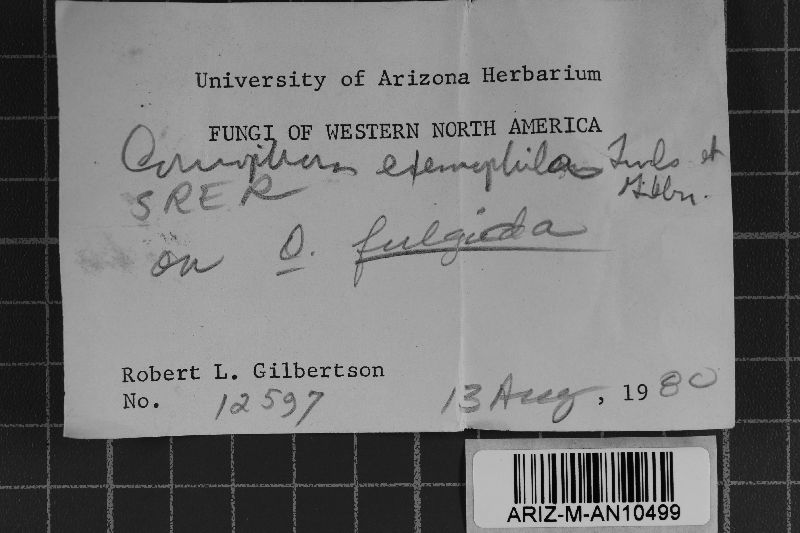 University of Arizona Herbarium
FUNGI OF WESTERN NORTH AMERICA
Coniophora eremophila Linds et
Gilbn.
SRER
on O. fulgida
Robert L. Gilbertson
No. 12597 13 Aug, 1980
ARIZ-M-AN10499